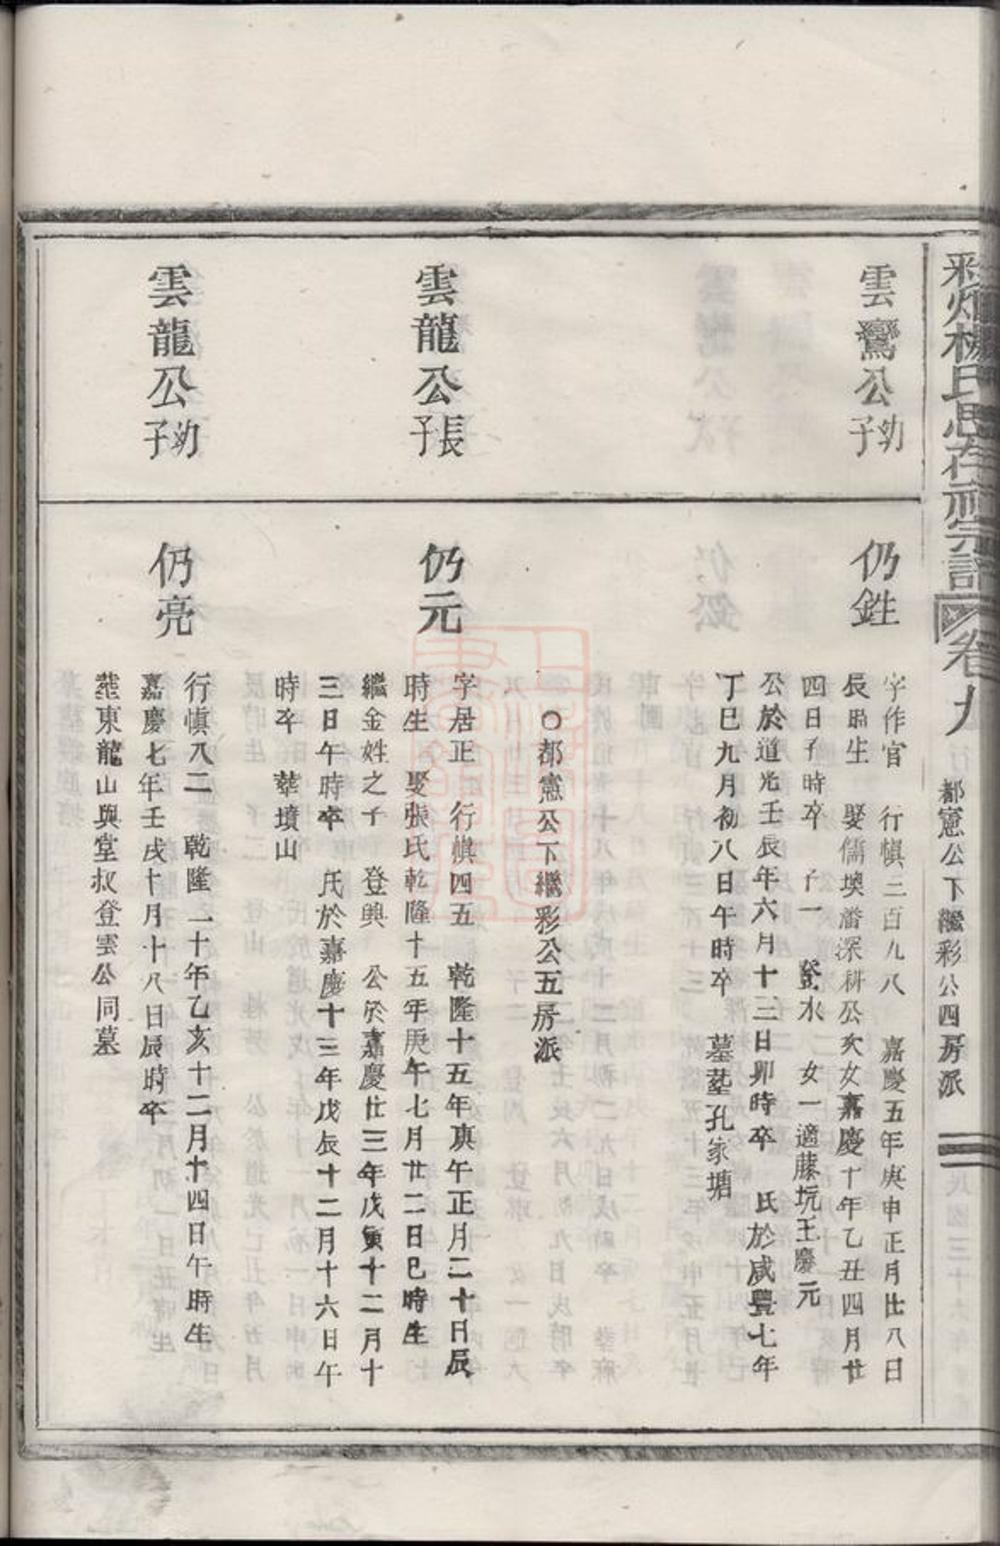 楊氏思存祠宗譜
卷九
都憲公下繼彩公四房派
雲鸞公幼子
仍鉎
字作官 行愼三百九八 嘉慶五年庚申正月廿八日
辰時生 娶儒墺潘深耕公次女嘉慶十年乙丑四月廿
四日子時卒 子一 登水 女一適藤坑王慶元
公於道光壬辰年六月十三日卯時卒 氏於咸豐七年
丁巳九月初八日午時卒 墓塟孔家塘
〇都憲公下繼彩公五房派
雲龍公長子
仍元
字居正 行愼四五 乾隆十五年庚午正月二十日辰
時生 娶張氏乾隆十五年庚午七月廿二日巳時生
繼金姓之子 登興 公於嘉慶廿三年戊寅十二月十
三日午時卒 氏於嘉慶十三年戊辰十二月十六日午
時卒 塟墳山
雲龍公幼子
仍亮
行愼八二 乾隆二十年乙亥十二月十四日午時生
嘉慶七年壬戌十月十八日辰時卒
塟東龍山與堂叔登雲公同墓